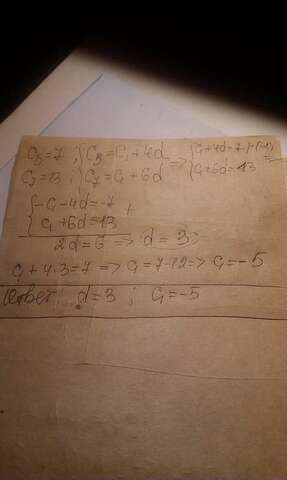 C₅=7 ; { C₅=C₁+4d => { C₁+4d=7 |·(-1)
C₇=13 ; { C₇=C₁+6d { C₁+6d=13 =>
{ -C₁-4d=-7
{ C₁+6d=13 +
2d=6 => d=3 =>
C₁+4·3=7 => C₁=7-12 => C₁=-5
Ответ d=3 ; C₁=-5